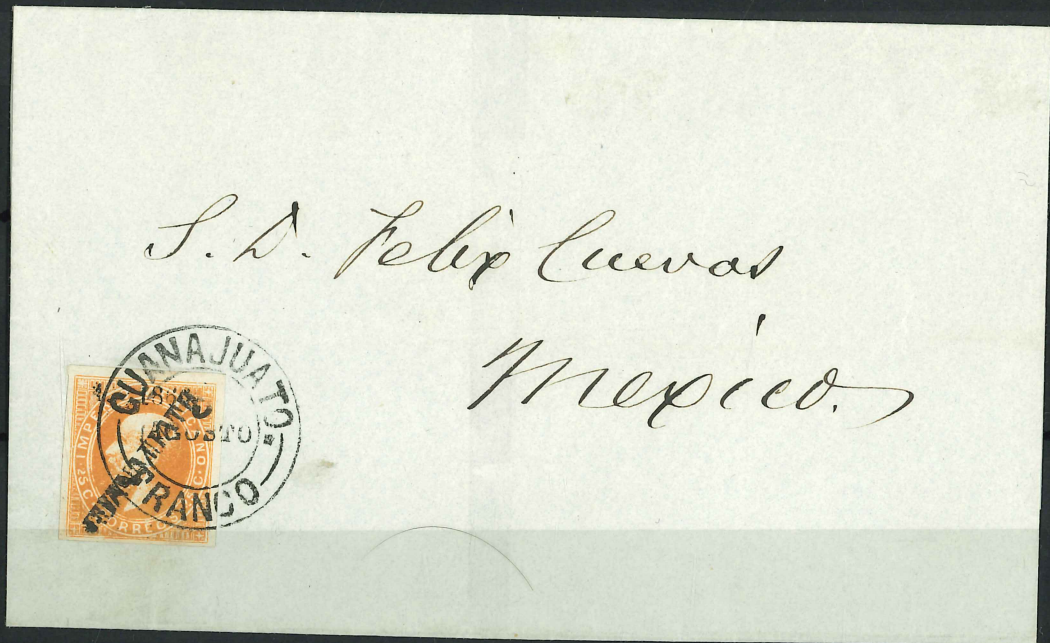 S. D. Felix Cuevas
Mexico.
GUANAJUATO.
AGOSTO
FRANCO
GUANAJUATO